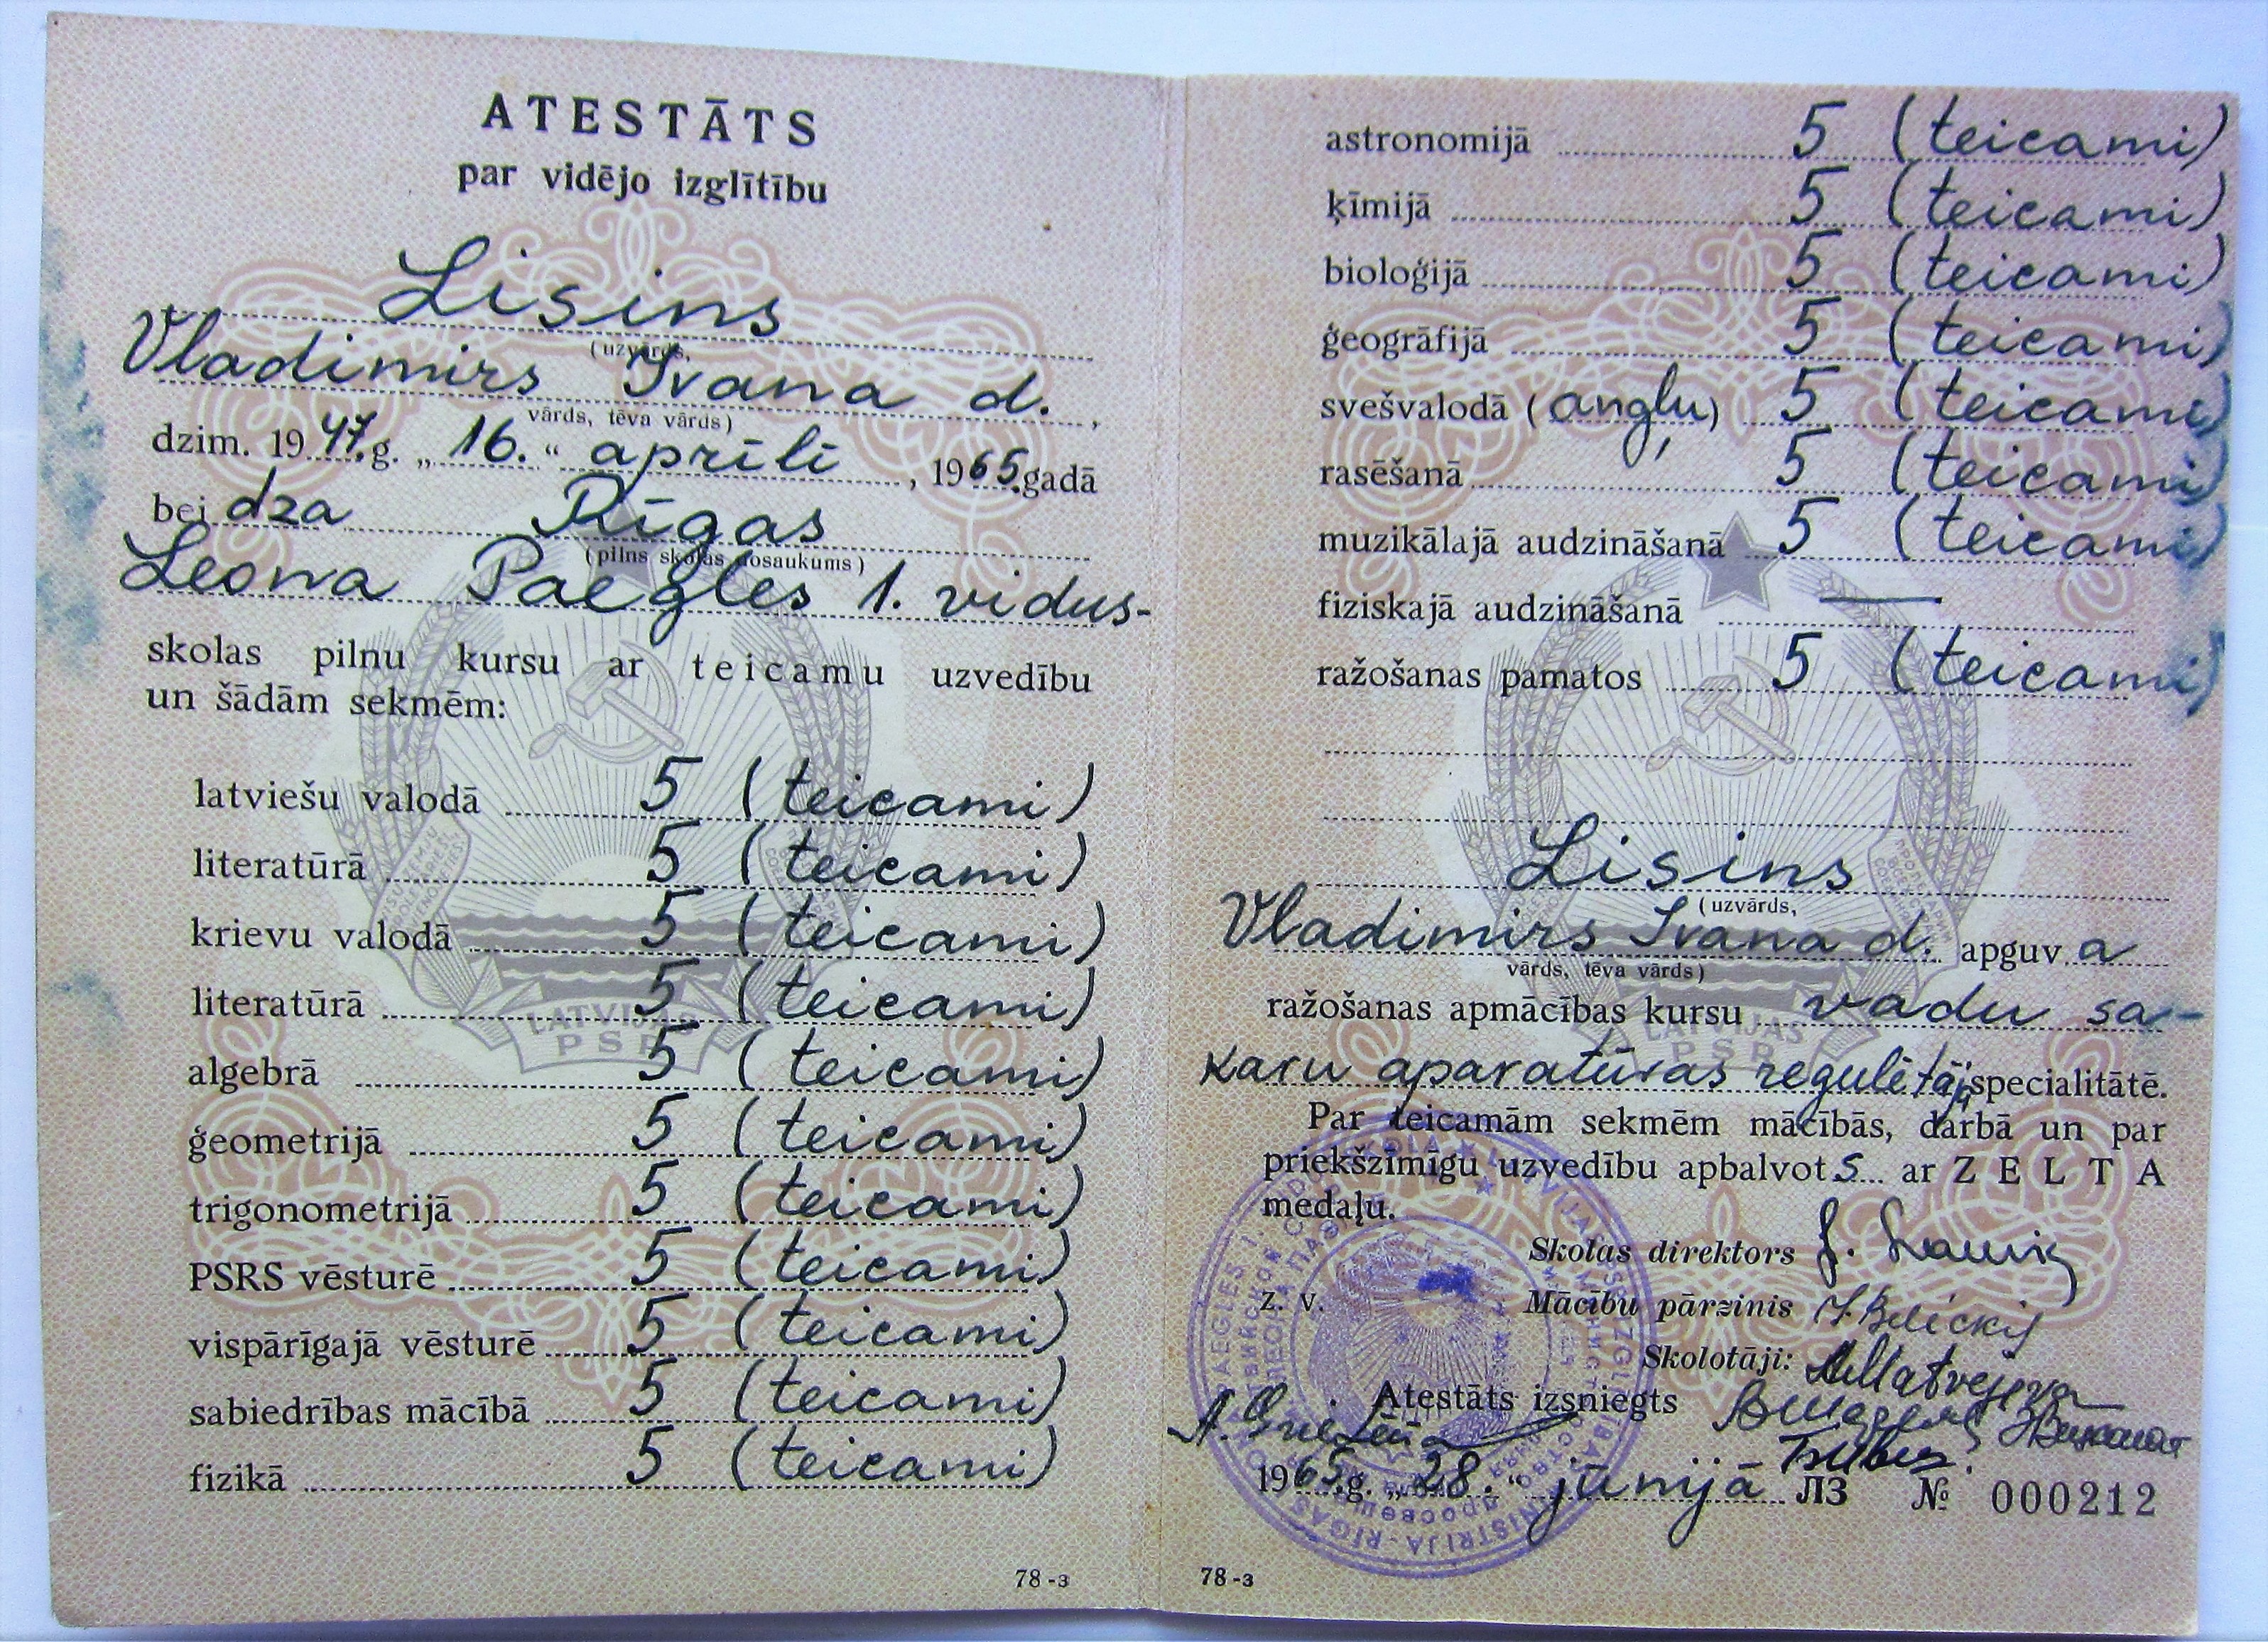 ATESTĀTS
par vidējo izglītību
Lisins
(uzvārds,
Vladimirs Ivana d.,
vārds, tēva vārds)
dzim. 1947.g. „16.“ aprīlī, 1965.gadā
beidza Rīgas
(pilns skolas nosaukums)
Leona Paegles 1. vidus-
skolas pilnu kursu ar teicamu uzvedību
un šādām sekmēm:
latviešu valodā 5 (teicami)
literatūrā 5 (teicami)
krievu valodā 5 (teicami)
literatūrā 5 (teicami)
algebrā 5 (teicami)
ģeometrijā 5 (teicami)
trigonometrijā 5 (teicami)
PSRS vēsturē 5 (teicami)
vispārīgajā vēsturē 5 (teicami)
sabiedrības mācībā 5 (teicami)
fizikā 5 (teicami)
LATVIJAS
PSR
78-з
astronomijā 5 (teicami)
ķīmijā 5 (teicami)
bioloģijā 5 (teicami)
ģeogrāfijā 5 (teicami)
svešvalodā (angļu) 5 (teicami)
rasēšanā 5 (teicami)
muzikālajā audzināšanā 5 (teicami)
fiziskajā audzināšanā —
ražošanas pamatos 5 (teicami)
Lisins
(uzvārds,
Vladimirs Ivana d. apguva
vārds, tēva vārds)
ražošanas apmācības kursu vadu sa-
karu aparatūras regulētāja specialitātē.
Par teicamām sekmēm mācībās, darbā un par
priekšzīmīgu uzvedību apbalvots ar ZELTA
medaļu.
Skolas direktors
z. v. Mācību pārzinis
Skolotāji: A.Matvejeva
Atestāts izsniegts
1965.g. „28.“ jūnijā ЛЗ № 000212
LATVIJAS
PSR
78-з